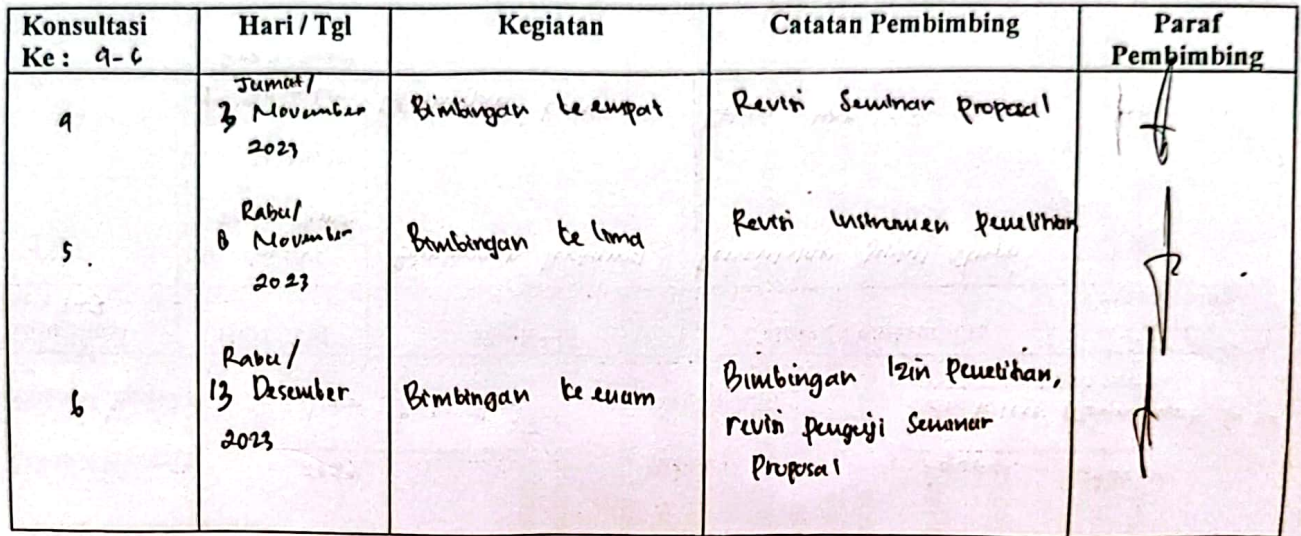 Konsultasi Ke : 4-6
Hari / Tgl
Kegiatan
Catatan Pembimbing
Paraf Pembimbing
4
Jumat/
3 November
2023
Bimbingan ke empat
Revisi Seminar Proposal
5.
Rabu/
8 November
2023
Bimbingan ke lima
Revisi Instrumen Penelitian
6
Rabu/
13 Desember
2023
Bimbingan ke enam
Bimbingan Izin Penelitian,
revisi Penguji Seminar
Proposal